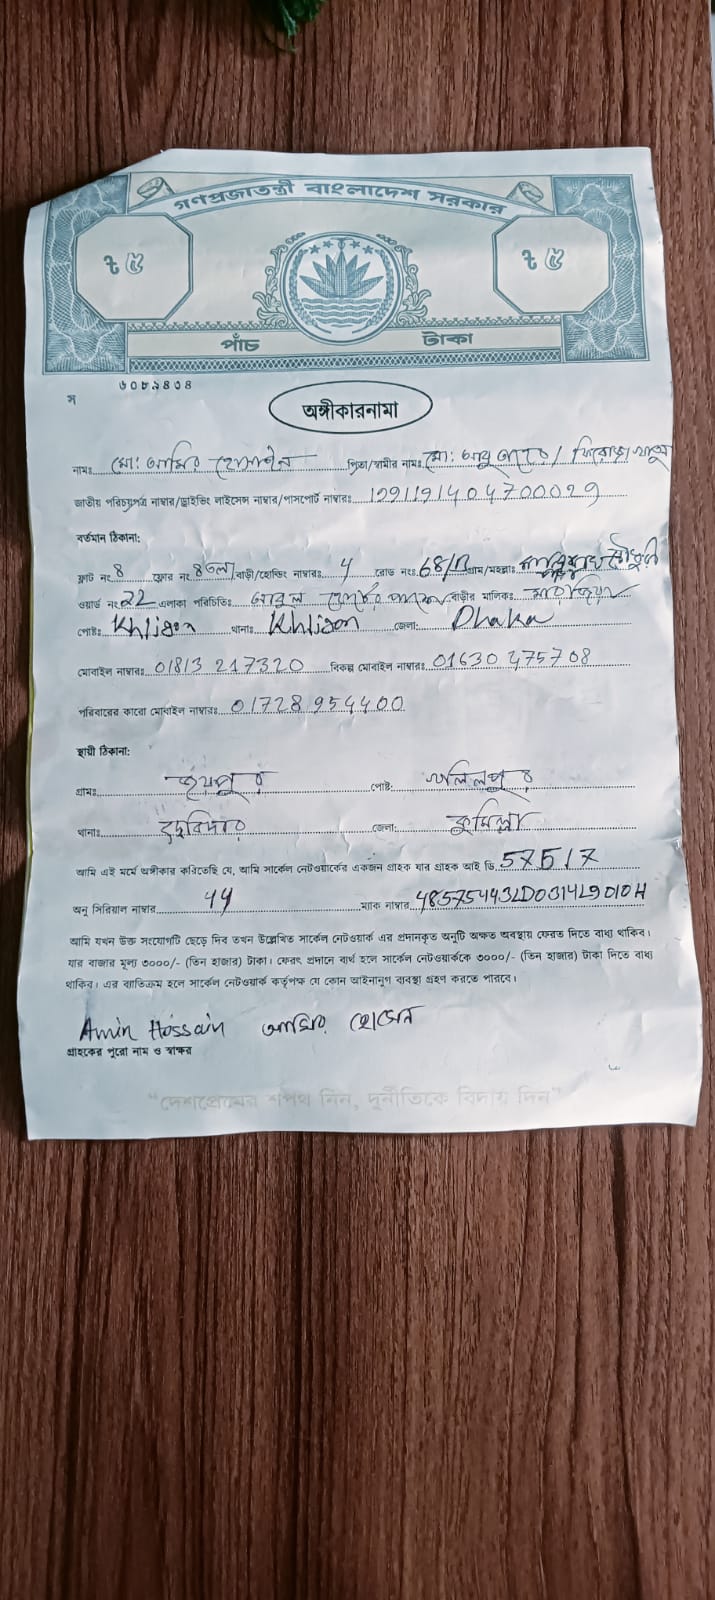 গণপ্রজাতন্ত্রী বাংলাদেশ সরকার
৳ ৫ ৳ ৫
পাঁচ টাকা
স ৬০৮৯৪৩৪
অঙ্গীকারনামা
নামঃ মো: আমির হোসাইন পিতা/স্বামীর নামঃ মো: আবু তাহের/
জাতীয় পরিচয়পত্র নাম্বার/ড্রাইভিং লাইসেন্স নাম্বার/পাসপোর্ট নাম্বারঃ 1991191404700029
বর্তমান ঠিকানা:
ফ্লাট নং 8 ফ্লোর নং 8 বাড়ী/হোল্ডিং নাম্বারঃ 4 রোড নংঃ গ্রাম/মহল্লাঃ
ওয়ার্ড নং 22 এলাকা পরিচিতিঃ আবুল বাড়ীর মালিকঃ
পোষ্টঃ Khligon থানাঃ Khligon জেলা: Dhaka
মোবাইল নাম্বারঃ 01813 217320 বিকল্প মোবাইল নাম্বারঃ 01630 475708
পরিবারের কারো মোবাইল নাম্বারঃ 01728 954400
স্থায়ী ঠিকানা:
গ্রামঃ পোষ্ট: খলিলপুর
থানাঃ জেলা: কুমিল্লা
আমি এই মর্মে অঙ্গীকার করিতেছি যে, আমি সার্কেল নেটওয়ার্কের একজন গ্রাহক যার গ্রাহক আই ডি 57517
অনু সিরিয়াল নাম্বার 44 ম্যাক নাম্বার
আমি যখন উক্ত সংযোগটি ছেড়ে দিব তখন উল্লেখিত সার্কেল নেটওয়ার্ক এর প্রদানকৃত অনুটি অক্ষত অবস্থায় ফেরত দিতে বাধ্য থাকিব।
যার বাজার মূল্য ৩০০০/- (তিন হাজার) টাকা। ফেরৎ প্রদানে ব্যর্থ হলে সার্কেল নেটওয়ার্ককে ৩০০০/- (তিন হাজার) টাকা দিতে বাধ্য
থাকিব। এর ব্যতিক্রম হলে সার্কেল নেটওয়ার্ক কর্তৃপক্ষ যে কোন আইনানুগ ব্যবস্থা গ্রহণ করতে পারবে।
Amin Hossain আমির হোসেন
গ্রাহকের পুরো নাম ও স্বাক্ষর
“দেশপ্রেমের শপথ নিন, দুর্নীতিকে বিদায় দিন”